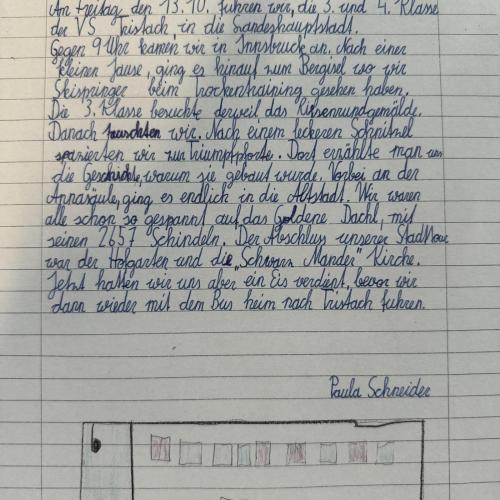 Am Freitag den 13.10. fuhren wir, die 3. und 4. Klasse
der VS Tristach, in die Landeshauptstadt.
Gegen 9 Uhr kamen wir in Innsbruck an. Nach einer
kleinen Jause, ging es hinauf zum Bergisel wo wir
Skispringer beim Trockentraining gesehen haben.
Die 3. Klasse besuchte derweil das Riesenrundgemälde.
Danach tauschten wir. Nach einem leckeren Schnitzel
spazierten wir zur Triumpfpforte. Dort erzählte man uns
die Geschichte, warum sie gebaut wurde. Vorbei an der
Annasäule, ging es endlich in die Altstadt. Wir waren
alle schon so gespannt auf das Goldene Dachl, mit
seinen 2657 Schindeln. Der Abschluss unserer Stadttour
war der Hofgarten und die "Schwarz Mander" Kirche.
Jetzt hatten wir uns aber ein Eis verdient, bevor wir
dann wieder mit dem Bus heim nach Tristach fuhren.
Paula Schneider